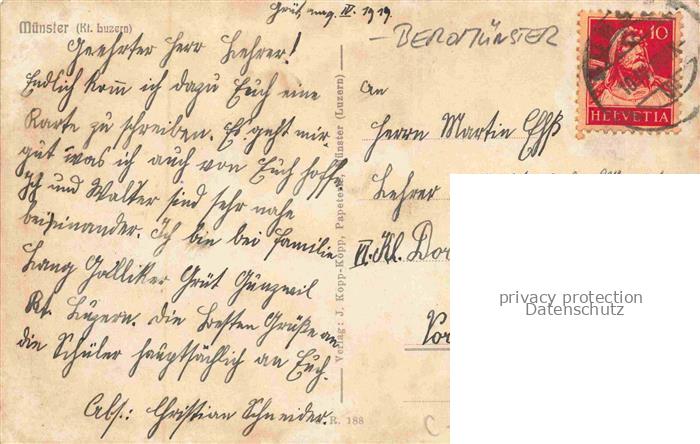 Münster (Kt. Luzern)
Grüt, aug. IV. 1919.
– BEROMÜNSTER
Geehrter Herr Lehrer!
Endlich komm ich dazu Euch eine
Karte zu schreiben. Es geht mir
gut was ich auch von Euch hoffe.
Ich und Walter sind sehr nahe
beieinander. Ich bin bei Familie
Lang Galliker Grüt Gunzwil
Kt. Luzern. Die besten Grüße an
die Schüler hauptsächlich an Euch.
Abs.: Christian Schneider.
Verlag: J. Kopp-Kopp, Papeterie, Münster (Luzern)
R. 188
An
Herrn Martin
Lehrer
II. Kl. Dor
10
HELVETIA
privacy protection
Datenschutz